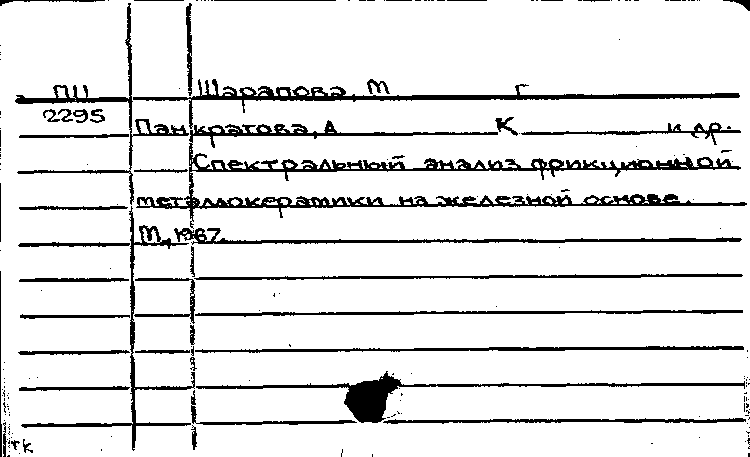 ПШ Шарапова, М Г
2295
Панкратова, А К и др.
Спектральный анализ фрикционной
металлокерамики на железной основе.
М., 1967.
тк